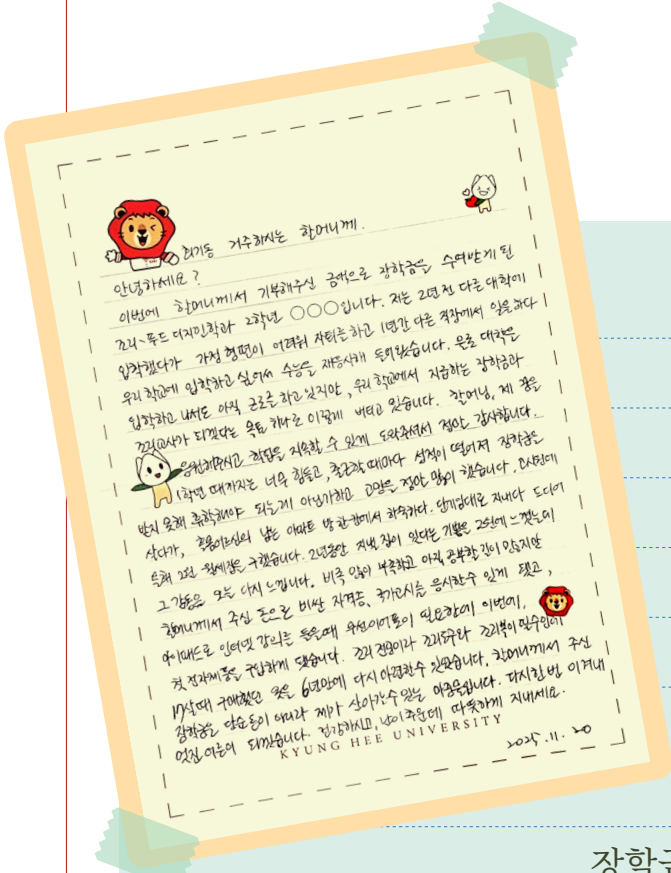 회기동 거주하시는 할머니께.
안녕하세요?
이번에 할머니께서 기부해주신 금액으로 장학금을 수여받게 된
조리·푸드 디자인학과 2학년 ○○○입니다. 저는 2년 전 다른 대학에
입학했다가 가정 형편이 어려워 자퇴를 하고 1년간 다른 직장에서 일을 하다
우리 학교에 입학하고 싶어서 수능을 재응시해 들어왔습니다. 대학을
입학하고 나서도 아직 근로를 하고 있지만, 우리 학교에서 지급하는 장학금과
조리교사가 되겠다는 목표 하나로 이렇게 버티고 있습니다. 할머님, 제 꿈을
응원해주시고 학업을 지속할 수 있게 도와주셔서 정말 감사합니다.
1학년 때까지는 너무 힘들고, 출근할 때마다 성적이 떨어져 장학금을
받지 못해 휴학해야 되는게 아닌가하고 고민을 정말 많이 했습니다.
살다가, 남는 아파트 방 한 칸에서 하숙하다. 단기임대로 지내다 드디어
올해 2월 월세집을 구했습니다. 2년동안 지낼 집이 있다는 기쁨을 2월에 느꼈는데
그 감동을 오늘 다시 느낍니다. 비록 많이 부족하고 아직 공부할 길이 많지만
할머니께서 주신 돈으로 비싼 자격증, 국가고시를 응시할 수 있게 됐고,
아이패드로 인터넷 강의를 들을때 무선이어폰이 필요한데 이번에,
첫 전자제품을 구입하게 됐습니다. 조리 전공이라 조리도구와 조리복이 필수인데
17살때 구매했던 옷을 6년만에 다시 마련할 수 있었습니다. 할머니께서 주신
장학금은 단순 돈이 아니라 제가 살아갈 수 있는 입니다. 다시 한 번 이겨내
멋진 어른이 되겠습니다. 건강하시고, 날이 추운데 따뜻하게 지내세요.
KYUNG HEE UNIVERSITY
2025. 11. 20
장학